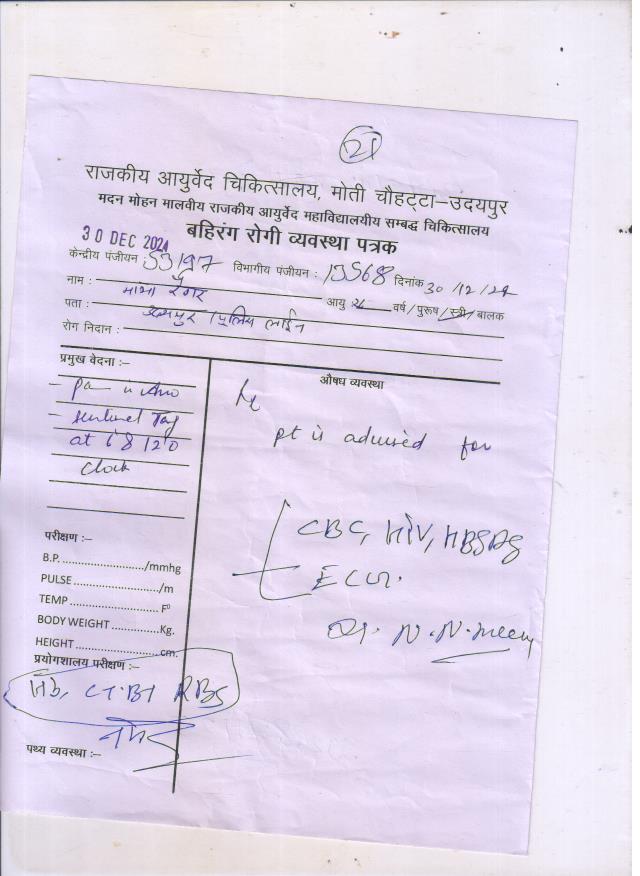 21
राजकीय आयुर्वेद चिकित्सालय, मोती चौहट्टा–उदयपुर
मदन मोहन मालवीय राजकीय आयुर्वेद महाविद्यालयीय सम्बद्ध चिकित्सालय
बहिरंग रोगी व्यवस्था पत्रक
30 DEC 2024
केन्द्रीय पंजीयन : 53197 विभागीय पंजीयन : 13568 दिनांक 30/12/24
नाम :
आयु वर्ष / पुरूष / स्त्री / बालक
पता : उदयपुर पुलिस लाईन
रोग निदान :
प्रमुख वेदना :–
- Pa in Ano
- Sentinel Tag
at 6 8 12 O
Clock
औषध व्यवस्था
pt is advised for
CBC, HIV, HBSAg
ECG.
Dr. N.N. Meena
परीक्षण :–
B.P. ............................/mmhg
PULSE ............................/m
TEMP ............................ F⁰
BODY WEIGHT ................Kg.
HEIGHT ........................cm.
प्रयोगशालय परीक्षण :–
Hb, CT.BT RBS
पथ्य व्यवस्था :–